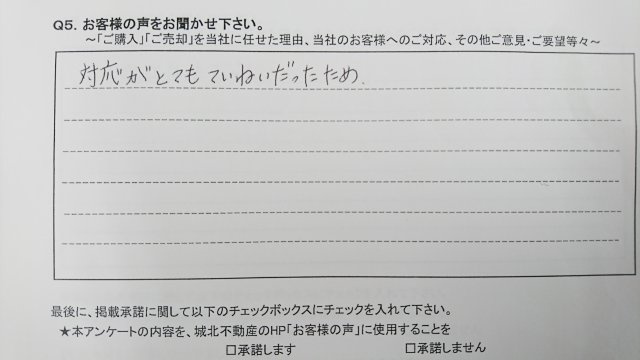 Q5. お客様の声をお聞かせ下さい。
~「ご購入」「ご売却」を当社に任せた理由、当社のお客様へのご対応、その他ご意見・ご要望等々~
対応がとてもていねいだったため.
最後に、掲載承諾に関して以下のチェックボックスにチェックを入れて下さい。
★本アンケートの内容を、城北不動産のHP「お客様の声」に使用することを
□承諾します □承諾しません